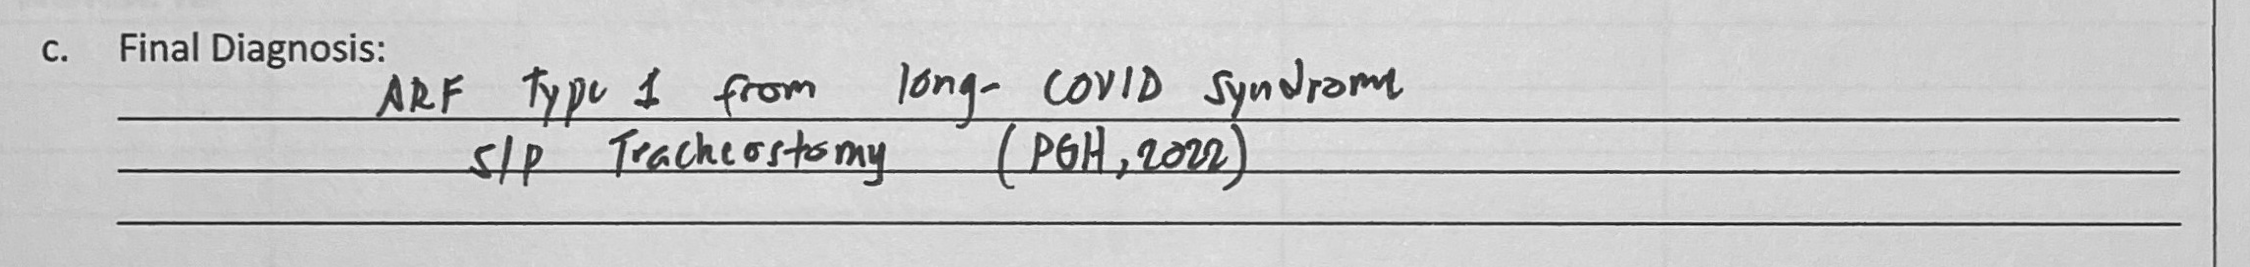 c. Final Diagnosis:
ARF Type 1 from long-COVID syndrome
s/p Tracheostomy (PGH, 2022)